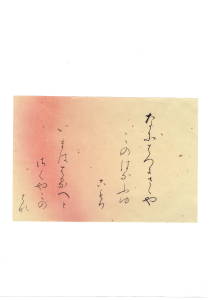 なにはつにさくや
このはなふゆ
こもり
いまははるへと
さくやこの
はな